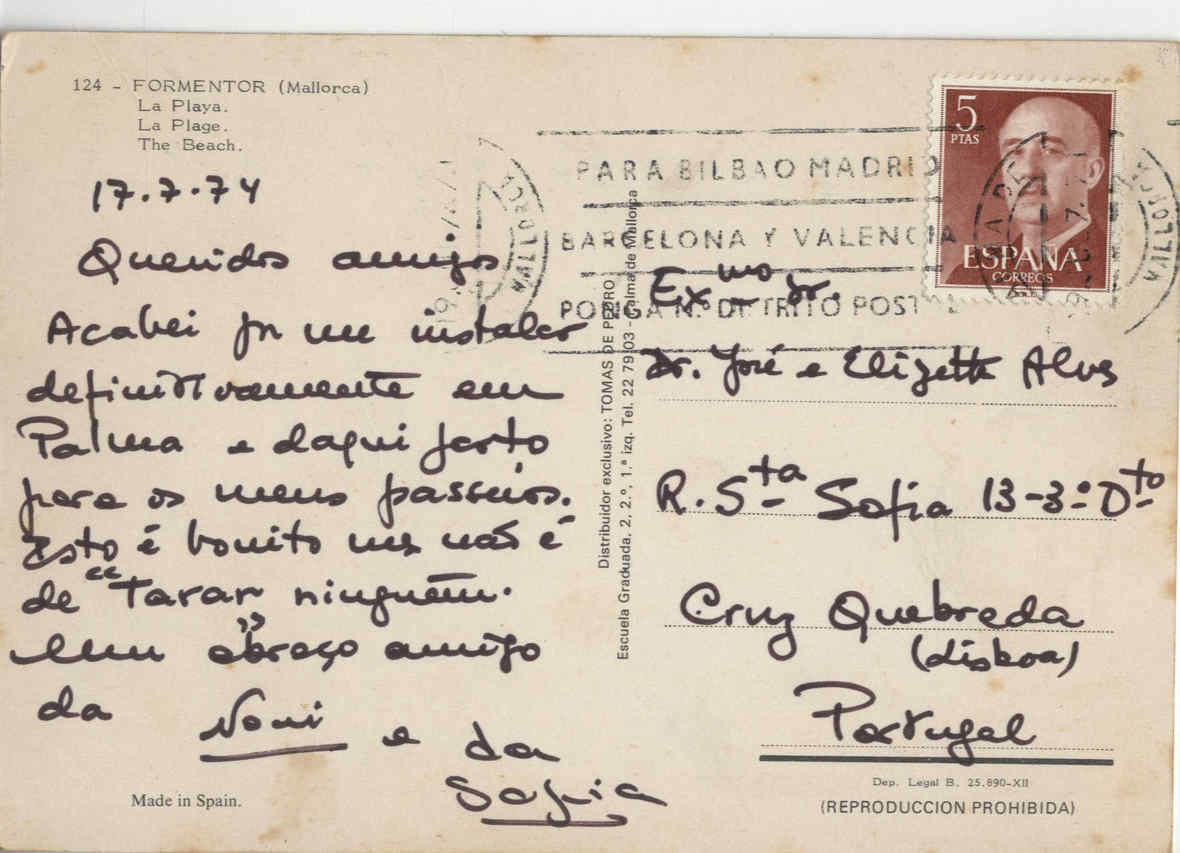 124 - FORMENTOR (Mallorca)
La Playa.
La Plage.
The Beach.
17.7.74
Queridos amigos
Acabei por me instalar
definitivamente em
Palma e daqui parto
para os meus passeios.
Isto é bonito mas não é
de "Tarar" ninguém.
Um abraço amigo
da Noui e da
Sofia
Made in Spain.
Distribuidor exclusivo: TOMAS DE PEDRO
Escuela Graduada, 2, 2.º, 1.ª izq. Tel. 22 79 03 - Palma de Mallorca
PARA BILBAO MADRID
BARCELONA Y VALENCIA
PONGA N.º DISTRITO POSTAL
MALLORCA
5
PTAS
ESPAÑA
CORREOS
MALLORCA
Exmo Sr.
Dr. José e Elizette Alves
R. Sta Sofia 13-3º Dto
Cruz Quebrada
(Lisboa)
Portugal
Dep. Legal B. 25.890-XII
(REPRODUCCION PROHIBIDA)